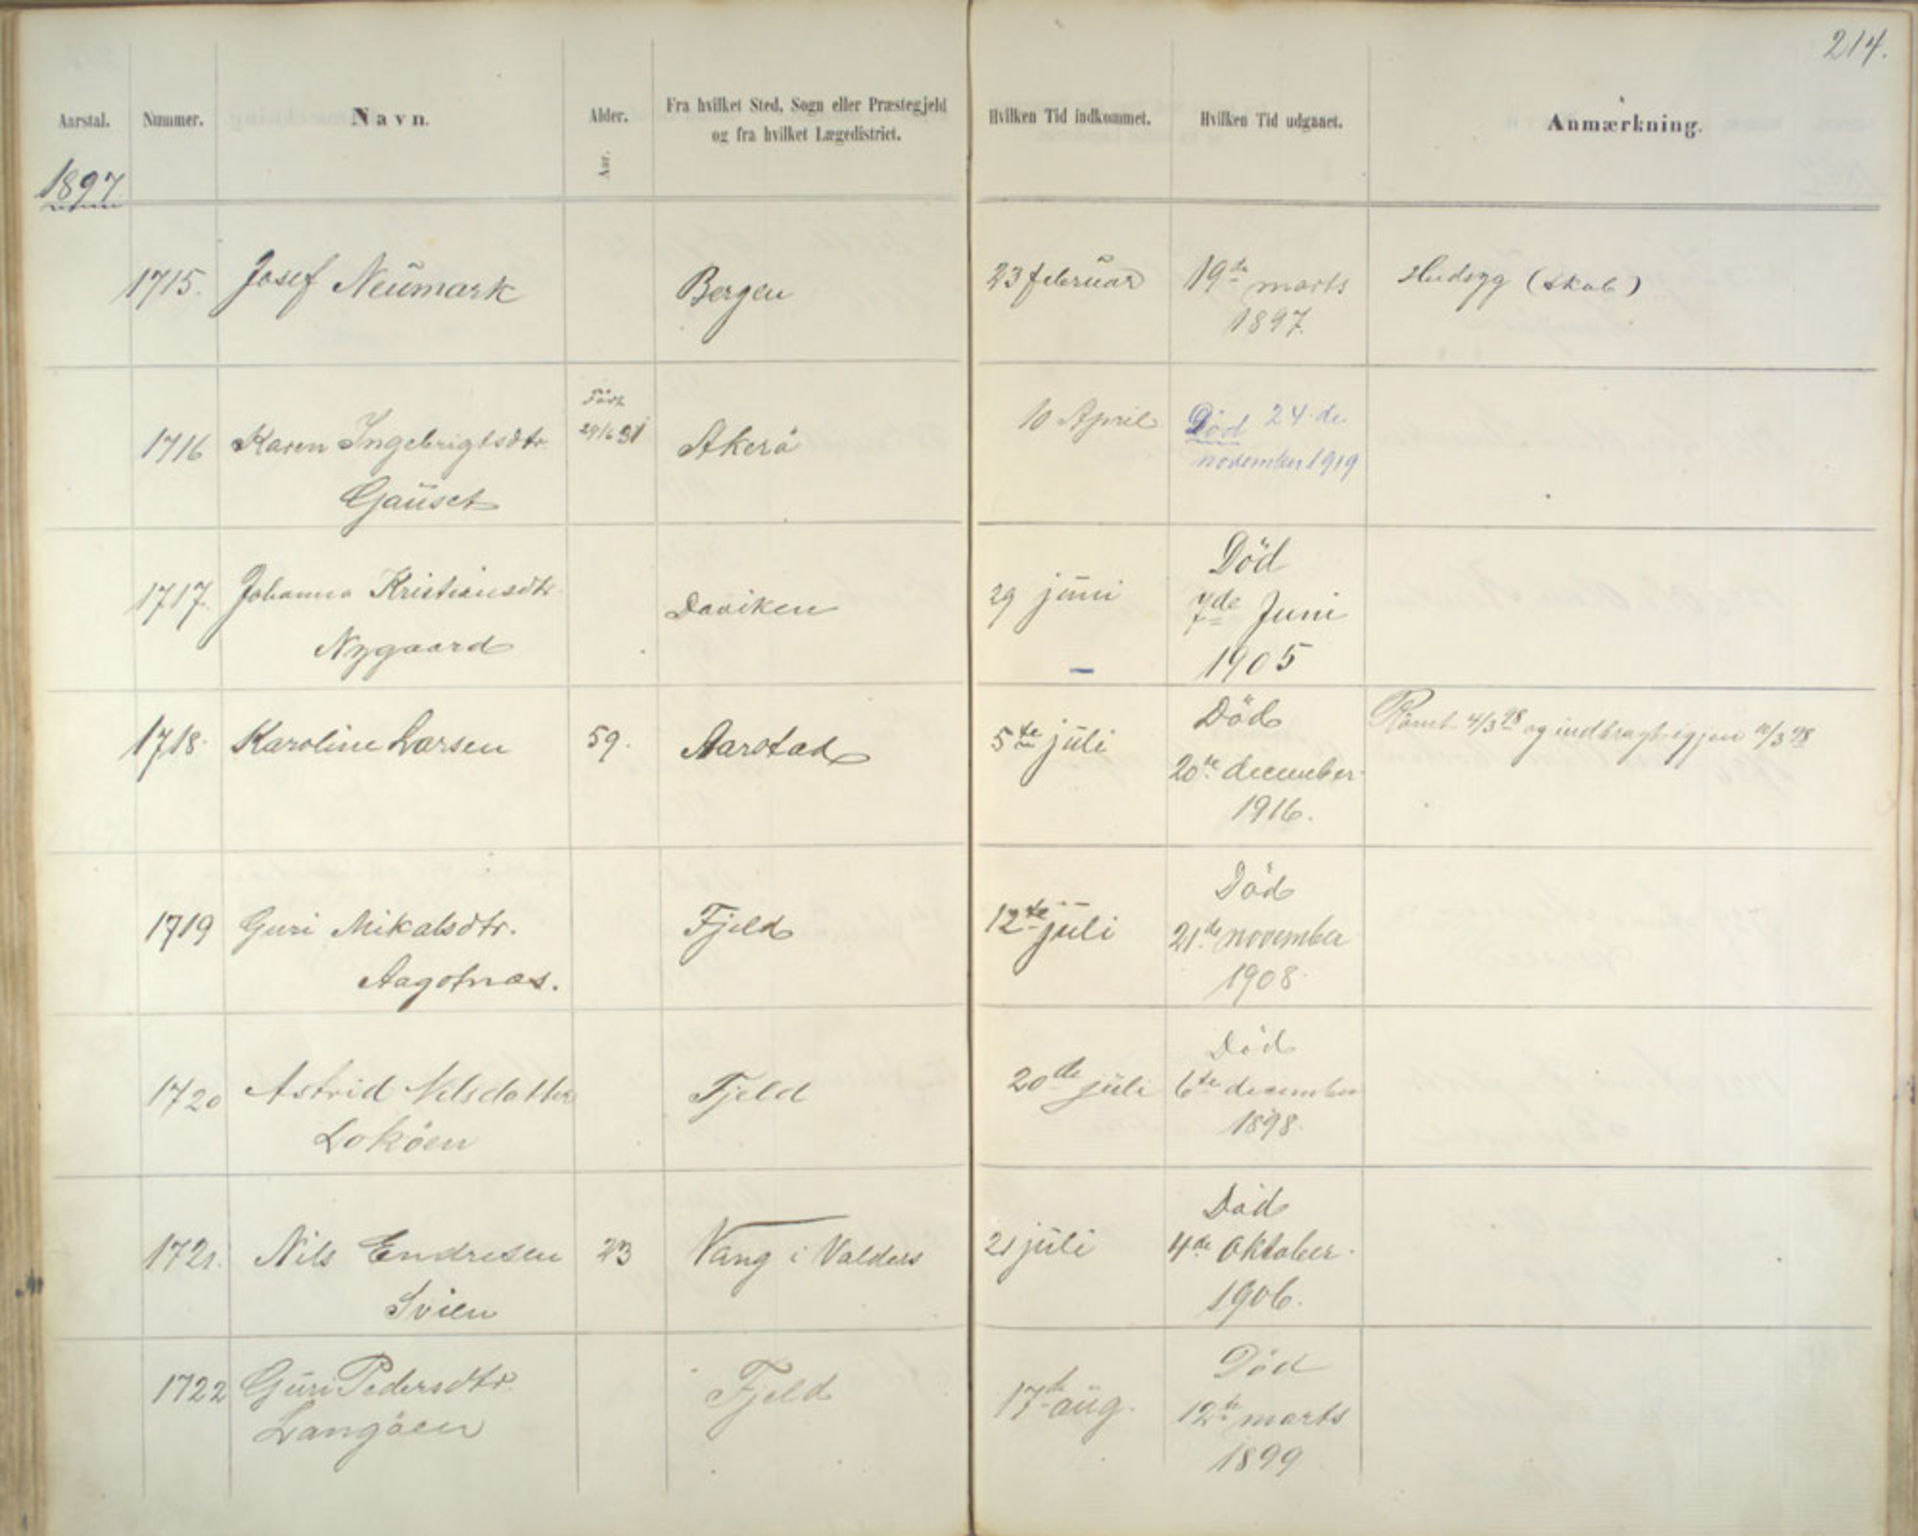 214.
Aarstal. Nummer. Navn. Alder. Fra hvilket Sted, Sogn eller Præstegjeld Hvilken Tid indkommet. Hvilken Tid udgaaet. Anmærkning.
og fra hvilket Lægedistrict.
Aar.
1897
1715. Josef Neumark Bergen 23 februar 19de marts Hudsyg (skab)
1897.
Född
29/6 31
1716 Karen Ingebrigtsdtr Akerö 10 April Död 24.de
Gauset november 1919
Död
1717. Johanna Kristiansdtr Daviken 29 juni 7de Juni
Nygaard 1905
Död
1718. Karoline Larsen 59. Aarstad 5te juli Römt 4/3 98 og indbragt igjen 10/3 98
20de december
1916.
Död
1719 Guri Mikalsdtr. Fjeld 12te juli 21de november
Aagotnæs. 1908.
Död
1720 Astrid Nilsdatter Fjeld 20de juli 6te december
Loköen 1898.
Död
1721. Nils Endresen 23 Vang i Valders 21 juli 4de Oktober.
Svien 1906.
Död
1722 Guri Pedersdtr. Fjeld 17de aug. 12te marts
Langöen 1899